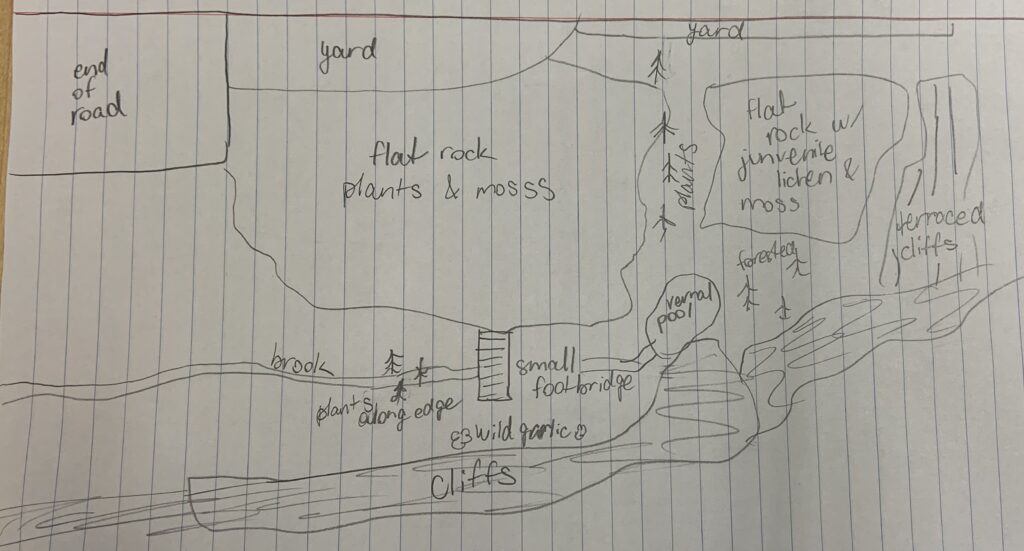 end
of
road
yard
yard
flat rock
plants & mosss
plants
flat
rock w/
junvenile
lichen &
moss
terraced
cliffs
forested
vernal
pool
brook
small
footbridge
plants
along edge
wild garlic
cliffs